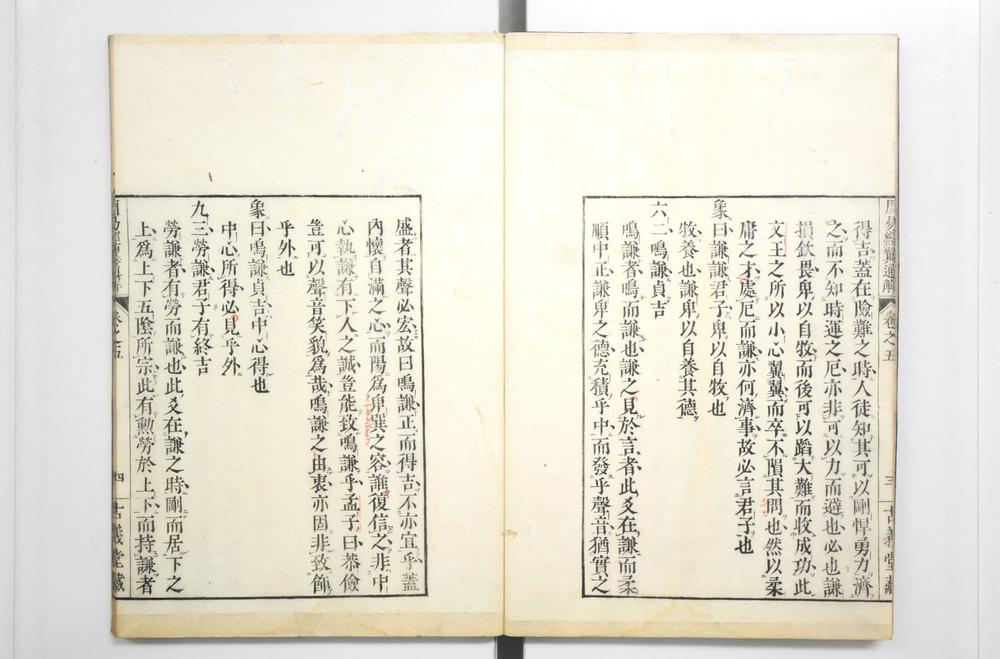 周易經翼通解 卷之五 三 古義堂藏
得吉蓋在險難之時人徒知其可以剛悍勇力濟
之而不知時運之厄亦非可以力而避也必也謙
損欽畏卑以自牧而後可以蹈大難而收成功此
文王之所以小心翼翼而卒不隕其問也然以柔
庸之才處厄而謙亦何濟事故必言君子也
象曰謙謙君子卑以自牧也
牧養也謙卑以自養其德
六二鳴謙貞吉
鳴謙者鳴而謙也謙之見於言者此爻在謙而柔
順中正謙卑之德充積乎中而發乎聲音猶實之
盛者其聲必宏故曰鳴謙正而得吉不亦宜乎蓋
內懷自滿之心而陽爲卑巽之容誰復信之非中
心執謙有下人之誠豈能致鳴謙乎孟子曰恭儉
豈可以聲音笑貌爲哉鳴謙之由衷亦固非致飾
乎外也
象曰鳴謙貞吉中心得也
中心所得必見乎外
九三勞謙君子有終吉
勞謙者有勞而謙也此爻在謙之時剛而居下之
上爲上下五陰所宗此有勲勞於上下而持謙者
周易經翼通解 卷之五 四 古義堂藏